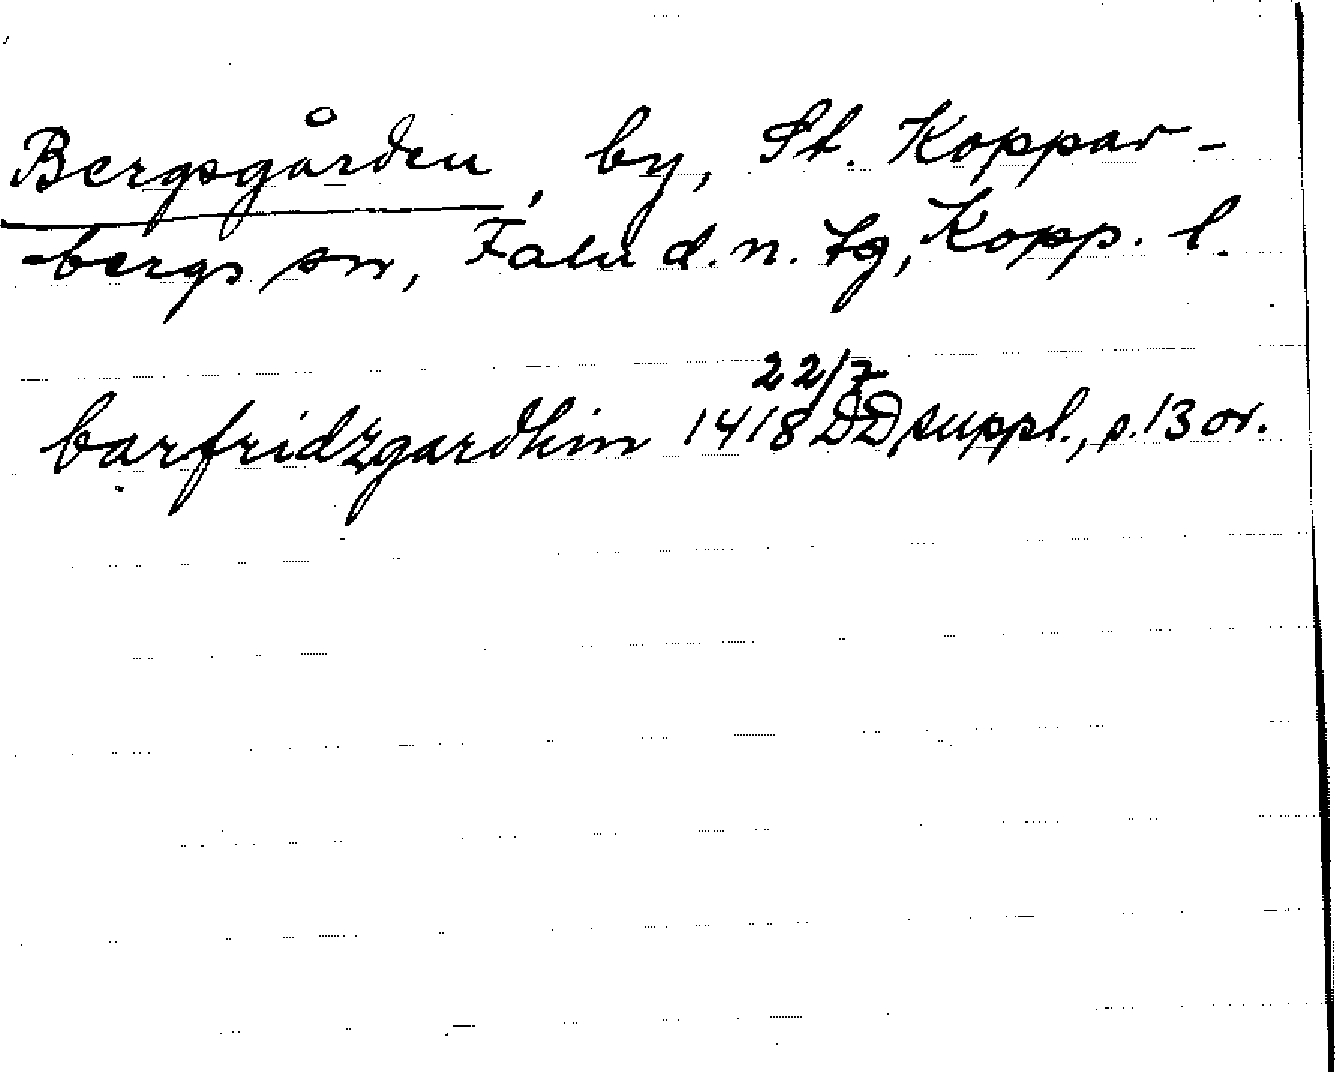 Bergsgården, by, St. Koppar-
-bergs sn, Falu d. n. tg, Kopp. l.
22/7
barfridzgardhin 1418 DD suppl., s. 13 or.